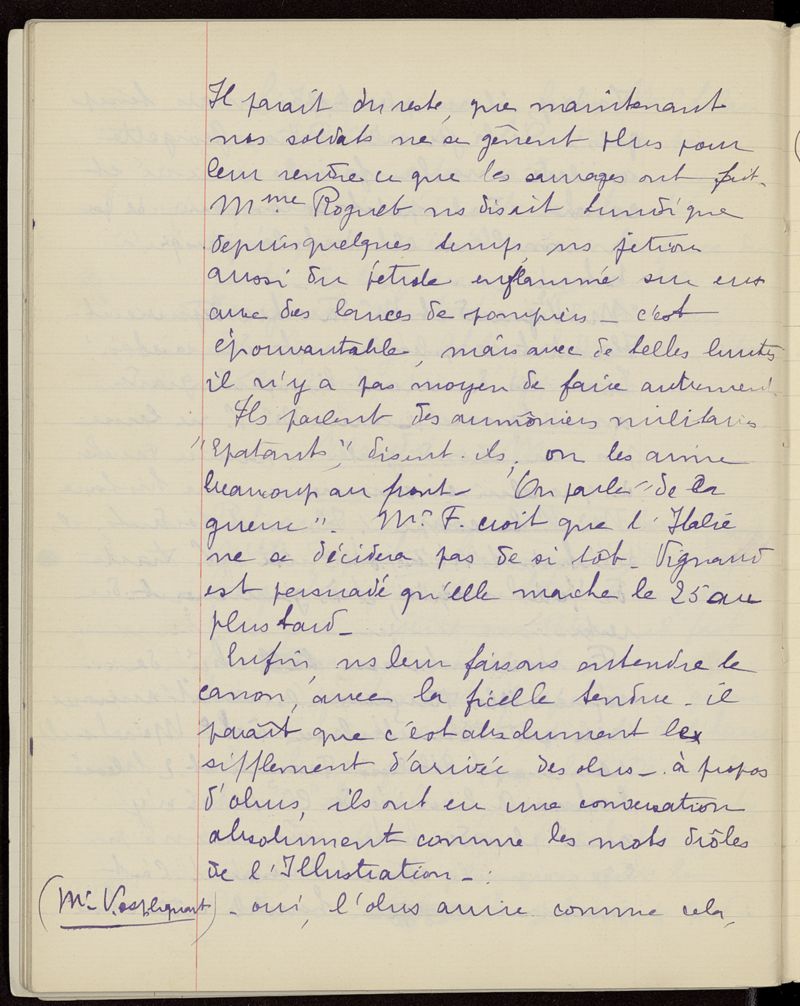 Il paraît du reste, que maintenant
nos soldats ne se gênent plus pour
leur rendre ce que les sauvages ont fait.
Mme Roguet ns disait lundi que
depuis quelques temps, ns jetions
aussi du pétrole enflammé sur eux
avec des lances de pompiers - c'est
épouvantable, mais avec de telles brutes
il n'y a pas moyen de faire autrement
Ils parlent des aumôniers militaires
"Epatants", disent-ils, on les aime
beaucoup au front - On parle "de la
guerre". Mr F. croit que l'Italie
ne se décidera pas de si tôt - Vignaud
est persuadé qu'elle marche le 25 au
plus tard -
Enfin, ns leur faisons entendre le
canon, avec la ficelle tendue - il
paraît que c'est absolument le
sifflement d'arrivée des obus - à propos
d'obus, ils ont eu une conversation
absolument comme les mots drôles
de l'Illustration - :
(Mr) - oui, l'obus arrive comme cela,